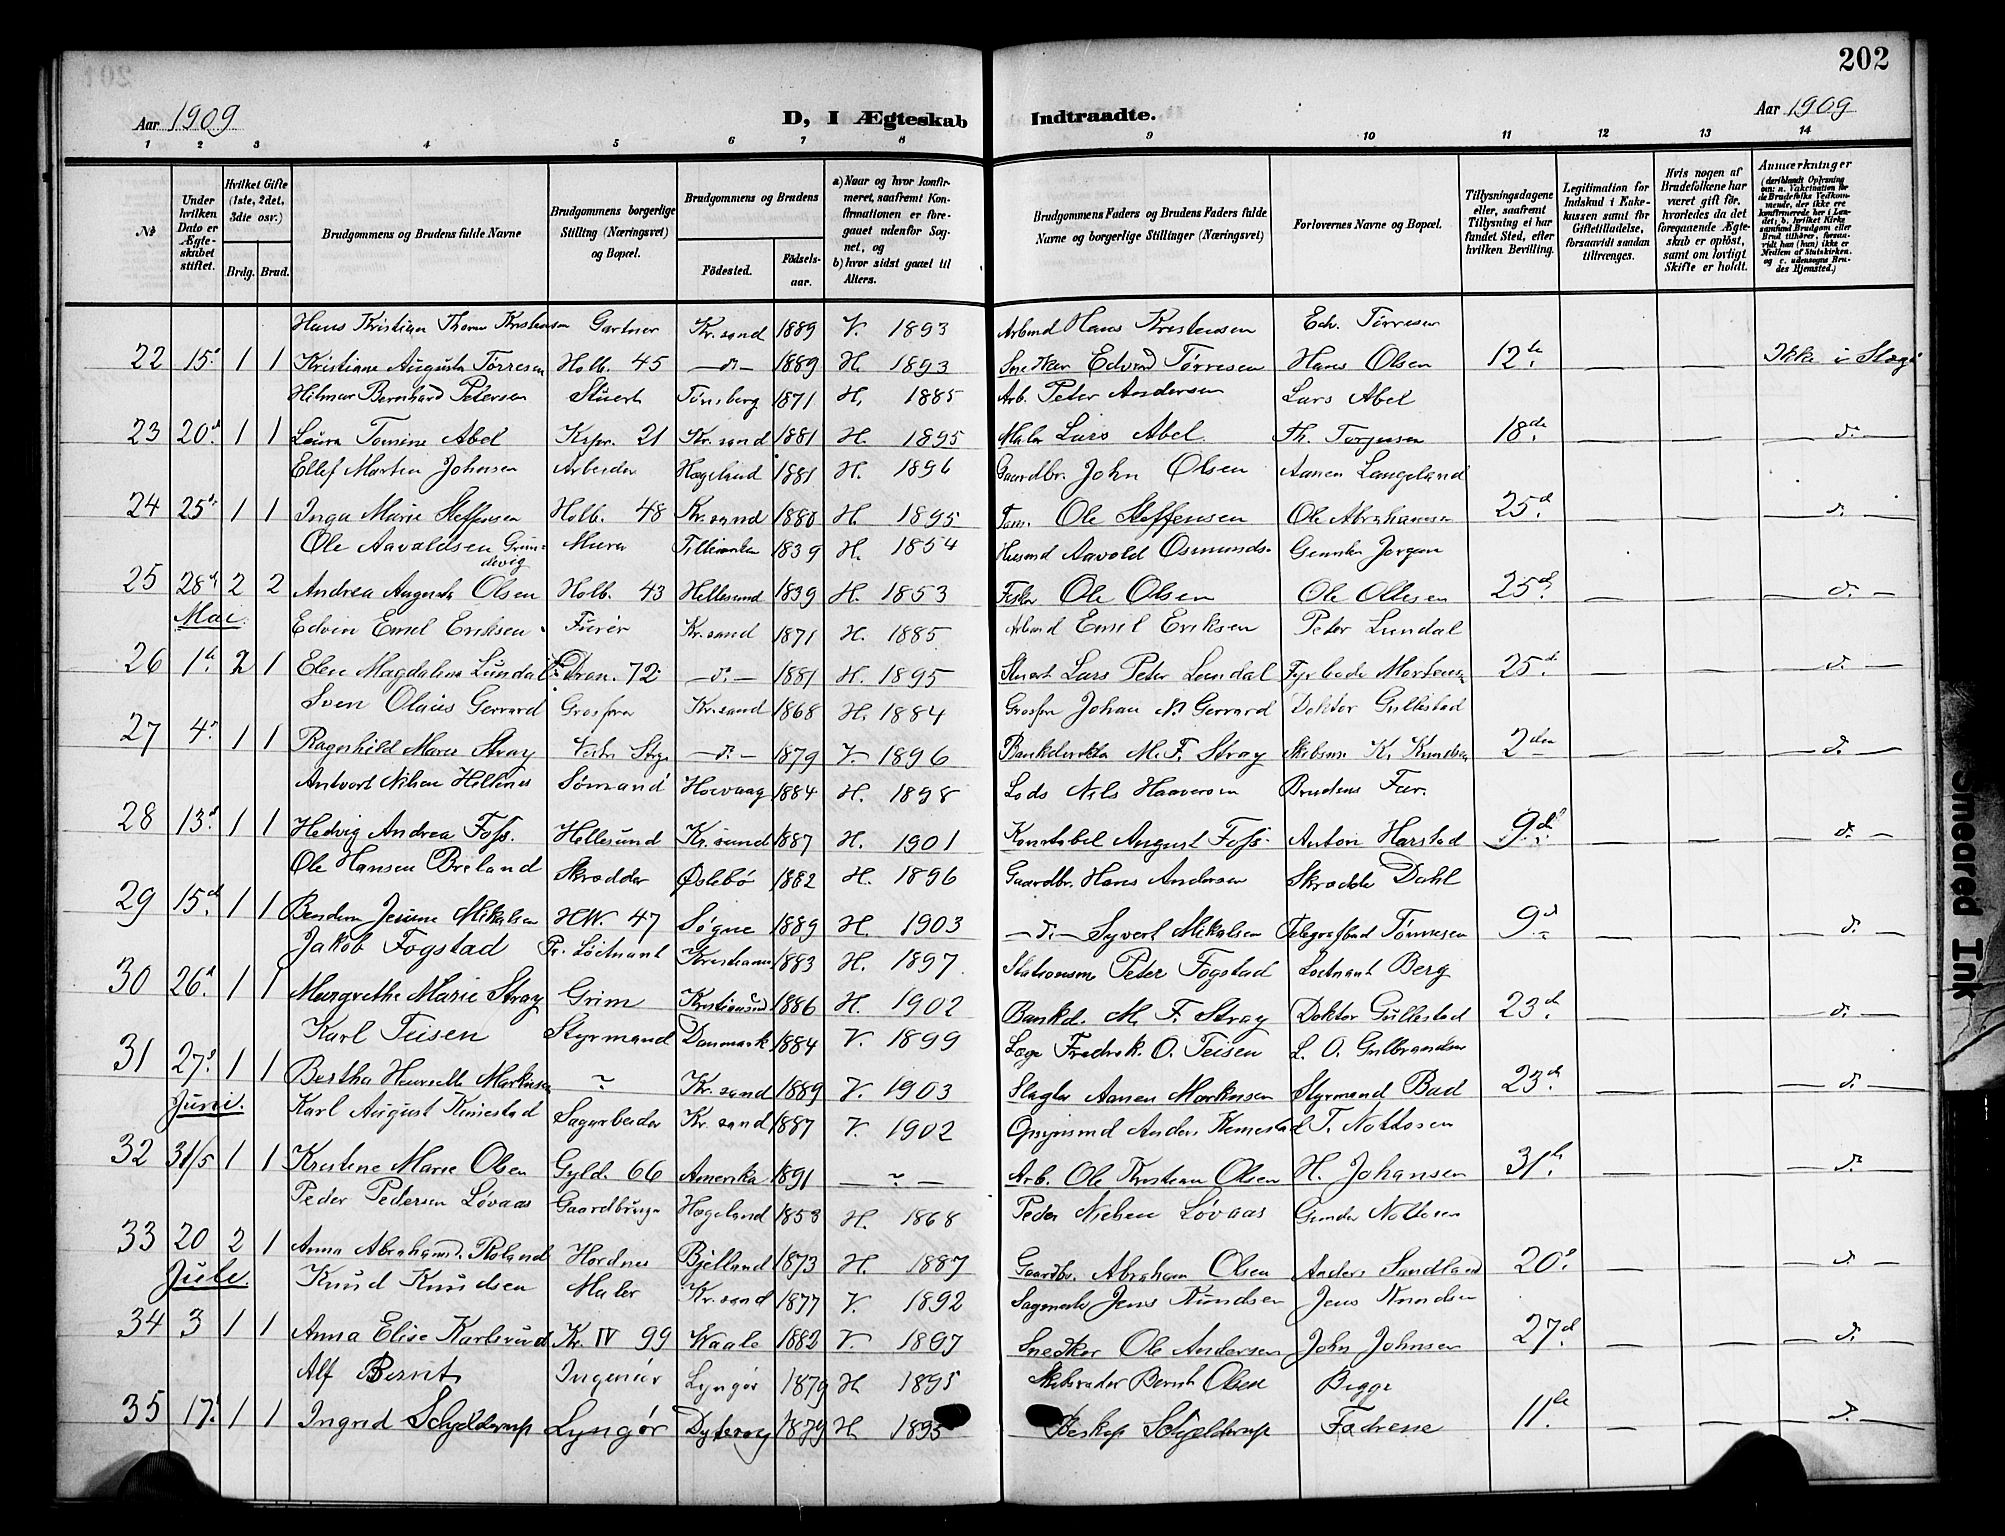 202
Aar 1909 D, I Ægteskab Indtraadte. Aar 1909
1 2 3 4 5 6 7 8 9 10 11 12 13 14
No
Under hvilken Dato er Ægteskabet stiftet.
Hvilket Gifte (1ste, 2det, 3die osv.)
Brdg. Brud.
Brudgommens og Brudens fulde Navne
Brudgommens borgerlige Stilling (Næringsvei) og Bopæl.
Brudgommens og Brudens
Fødested. Fødselsaar.
a) Naar og hvor konfirmeret, saafremt Konfirmationen er foregaaet udenfor Sognet, og
b) hvor sidst gaaet til Alters.
Brudgommens Faders og Brudens Faders fulde Navne og borgerlige Stillinger (Næringsvei)
Forlovernes Navne og Bopæl.
Tillysningsdagene eller, saafremt Tillysning ei har fundet Sted, efter hvilken Bevilling.
Legitimation for Indskud i Enkekassen samt for Giftetilladelse, forsaavidt saadan tiltrænges.
Hvis nogen af Brudefolkene har været gift før, hvorledes da det foregaaende Ægteskab er opløst, samt om lovligt Skifte er holdt.
Anmærkninger
Hans Kristian Thom Kristensen Gartner Kr.sand 1889 V. 1893 Arbmd Hans Kristensen Edv. Tørresen
22 15. 1 1 Kristiane Augusta Tørresen Holb. 45 — d. — 1889 H. 1893 Snedker Edvard Tørresen Hans Olsen 12te — — Ikke i Slægt
Hilmar Bernhard Petersen Stuert Tønsberg 1871 H. 1885 Arb. Peter Andersen Lars Abel
23 20. 1 1 Laura Tomine Abel 21 Kr.sand 1881 H. 1895 Maler Lars Abel Th. Torjusen 18de — — — d. —
Ellef Marten Johnsen Arbeider Hægeland 1881 H. 1896 Gaardbr. John Olsen Aanen Langeland
24 25. 1 1 Inga Marie Steffensen Holb. 48 Kr.sand 1880 H. 1895 Ole Steffensen Ole Abrahamsen 25d — — — d. —
Ole Aavaldsen Grundevig Murer 1839 H. 1854 Husmd Aavold Osmunds. Jørgen
25 28d 2 2 Andrea Augusta Olsen Holb. 43 Hellesund 1839 H. 1853 Fisker Ole Olsen Ole Ollesen 25d — — — d. —
Mai.
Edvin Emil Eriksen Furér Kr.sand 1871 H. 1885 Arbmd Emil Eriksen Peter Lundal
26 1te 2 1 Elen Magdalene Lundal Dron. 72 — d. — 1881 H. 1895 Stuert Lars Peter Lundal Fyrbøde Mortensen 25d — — — d. —
Sven Olaus Gerrard Grosfrer Kr.sand 1868 H. 1884 Grosfrer Johan N. Gerrard Doktor Gullestad
27 4. 1 1 Ragnhild Marie Stray — d. — 1879 V. 1896 Bankdirektør M. F. Stray Skibsm. K. Knudsen 2den — — — d. —
Antvort Nilsen Hillenes Sømand Høivaag 1884 H. 1898 Lods Nils Haaversen Brudens Far.
28 13d 1 1 Hedvig Andrea Foss. Hellesund Kr.sund 1887 H. 1901 Konstabel August Foss Anton Harstad 9d — — — d. —
Ole Hansen Breland Skrædder Øslebø 1882 H. 1896 Gaardbr. Hans Andersen Skrædder Dahl
29 15d 1 1 Jesine Mikalsen H.W. 47 Søgne 1889 H. 1903 — d. — Syvert Mikalsen Telegrafbud Tønnesen 9d — — — d. —
Jakob Fogstad Pr. Løitnant 1883 H. 1897 Stationsm Peter Fogstad Løitnant Berg
30 26d 1 1 Margrethe Marie Stray Grim Kristiansund 1886 H. 1902 Bankd. M. F. Stray Doktor Gullestad 23d — — — d. —
Karl Teisen Styrmand Danmark 1884 V. 1899 Læge Fredrik. O. Teisen L. O. Gulbrandsen
31 27d 1 1 Bertha Henriette Markusen Kr.sand 1889 V. 1903 Slagter Aanen Markusen Styrmand Bad 23d — — — d. —
Juni.
Karl August Kimestad Sagarbeider Kr.sand 1887 V. 1902 Anders Kimestad T. Nottosen
32 31/5 1 1 Kristine Marie Olsen Gyld. 66 Amerika 1891 — " — Arb. Ole Kristian Olsen H. Johansen 31te — — — d. —
Peder Pedersen Løvaas Gaardbruger Hægeland 1853 H. 1868 Peder Nielsen Løvaas Gunder Nottosen
33 20 2 1 Anna Abrahamsd. Roland Hordnes Bjelland 1873 H. 1887 Gaardbr. Abraham Olsen Anders Sandland 20d — — — d. —
Jule.
Knud Knudsen Maler Kr.sand 1877 V. 1892 Jens Knudsen Jens Knudsen
34 3 1 1 Anna Elise Karlsrud Kr. IV 99 Waale 1882 V. 1897 Snedker Ole Andersen John Johnsen 27d — — — d. —
Alf Bernt Ingeniør Lyngør 1879 H 1895 Skibsreder Bernt Olsen Begge
35 17. 1 1 Ingrid Schjelderup Lyngør 1879 H 1893 Biskop Schjelderup Fædrene 11te — — — d. —
Smeared Ink